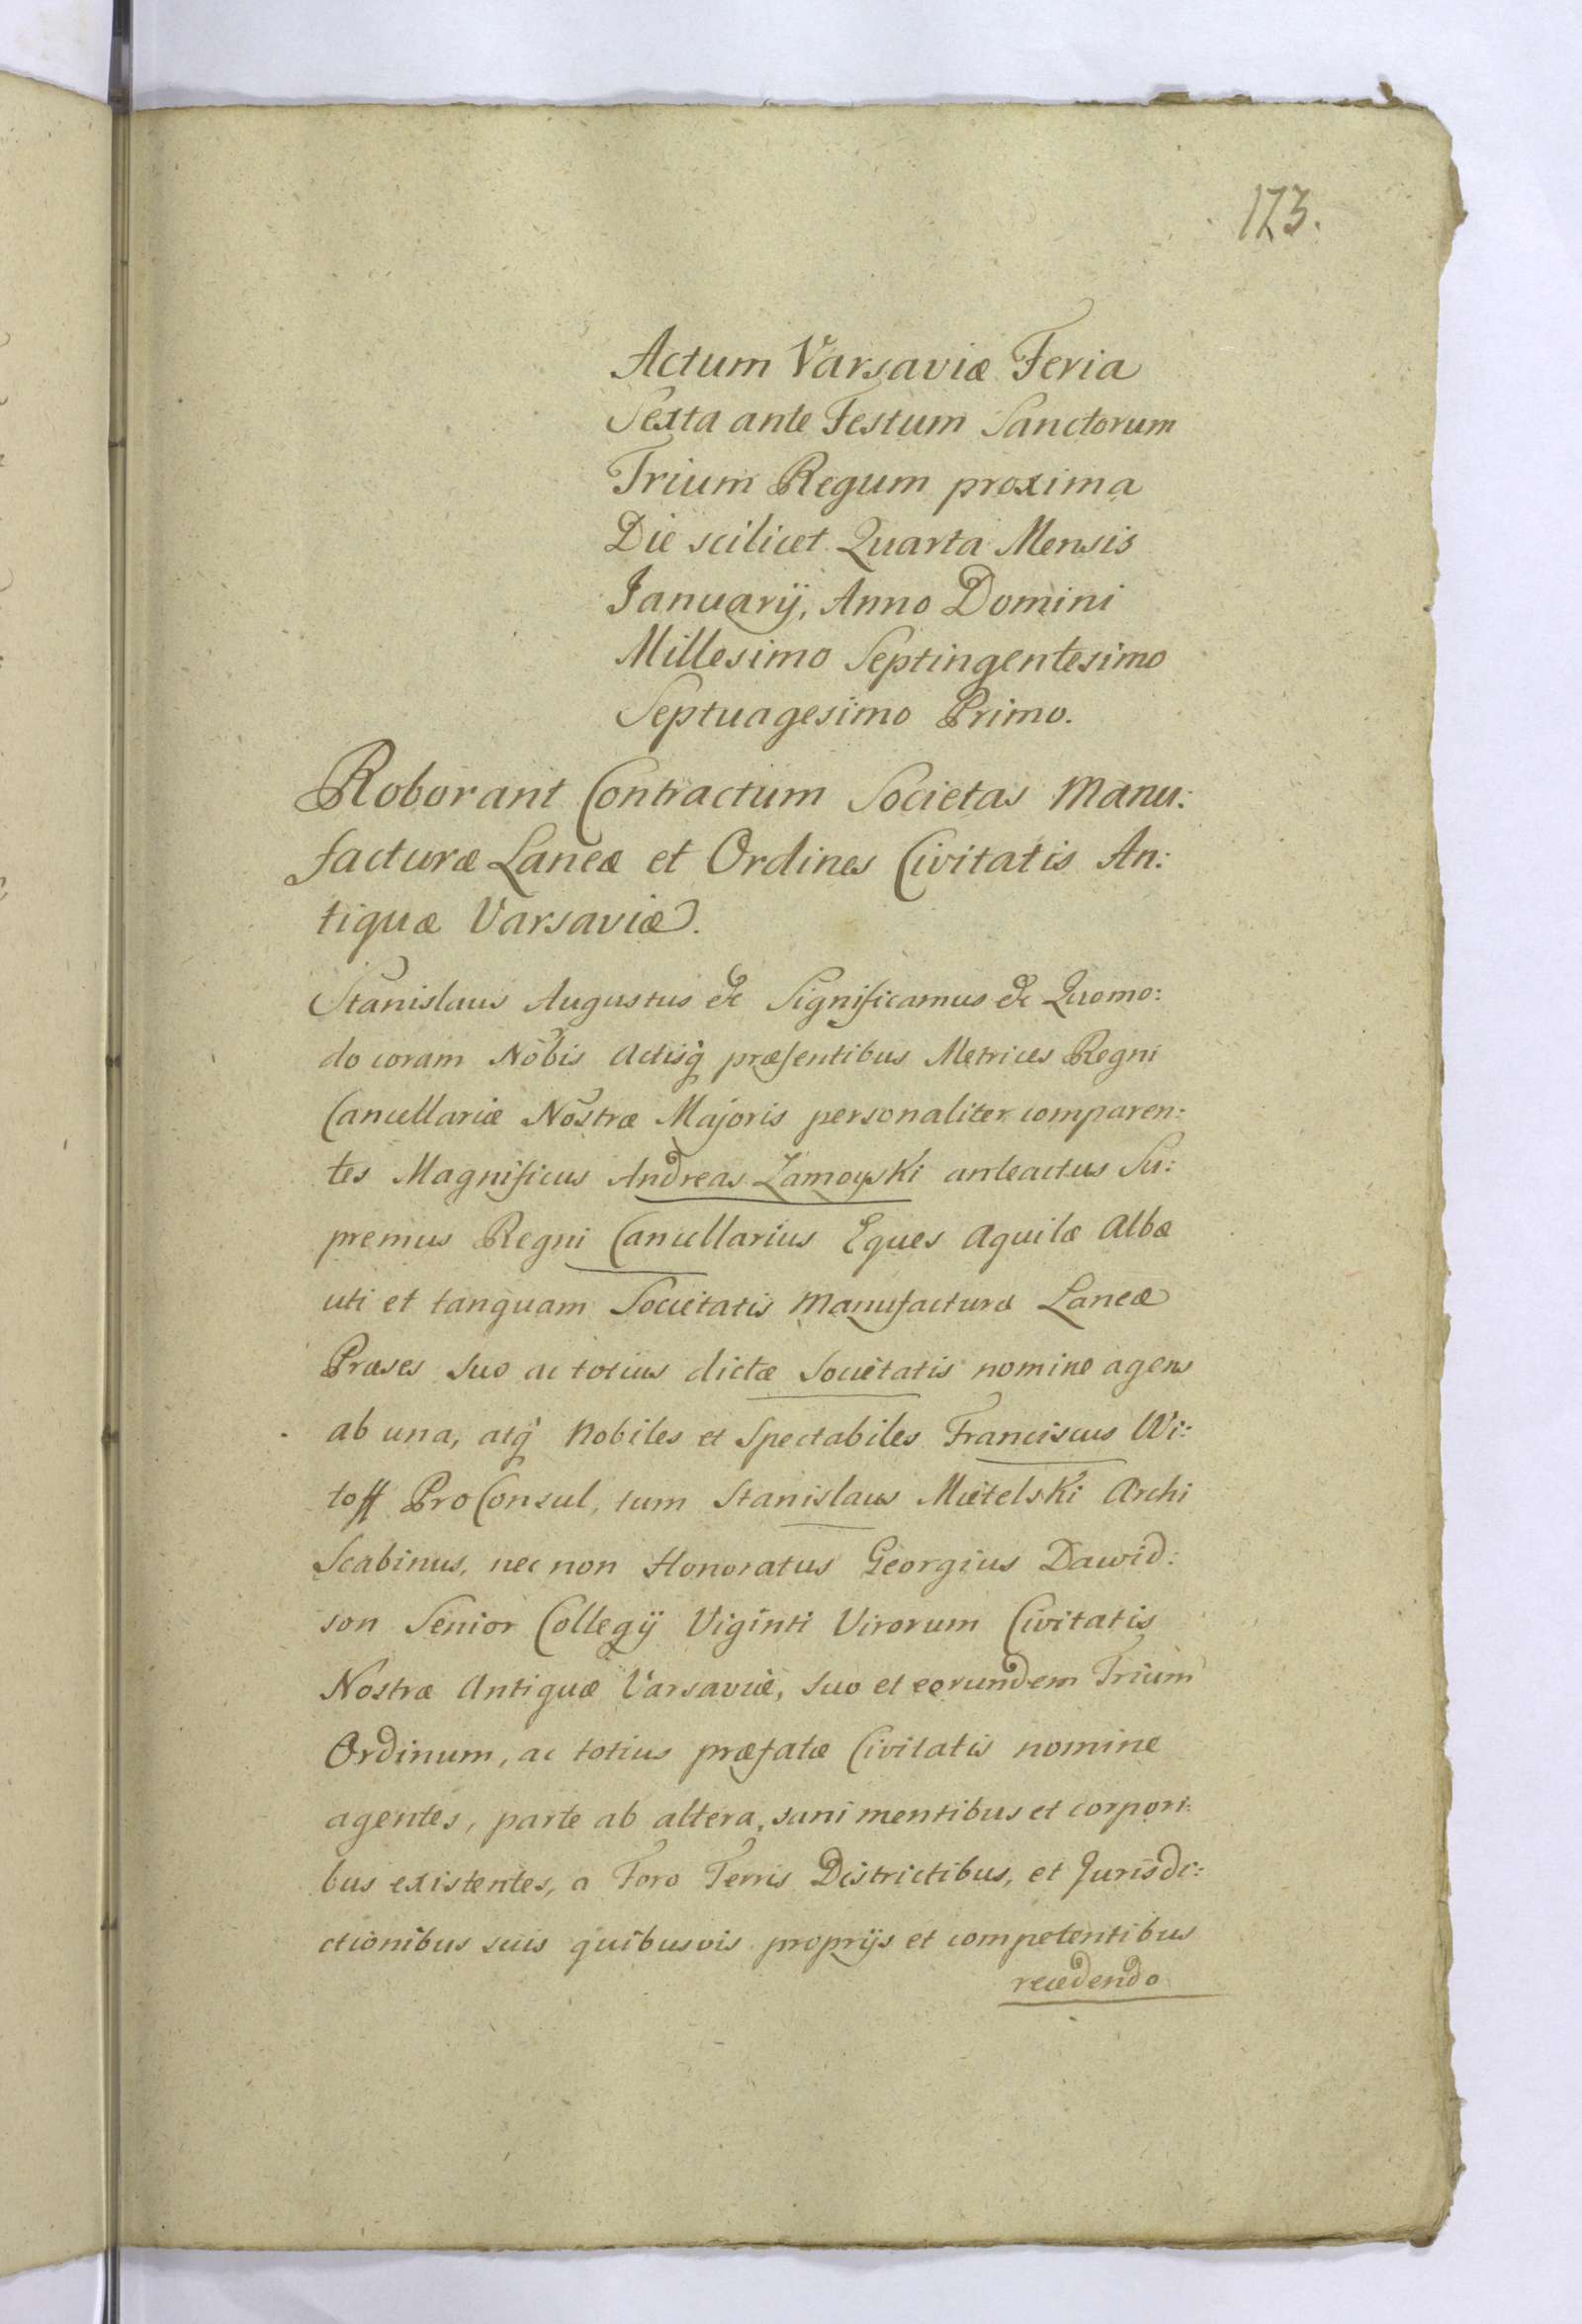 173.
Actum Varsaviæ Feria
Sexta ante Festum Sanctorum
Trium Regum proxima
Die scilicet Quarta Mensis
Januarij, Anno Domini
Millesimo Septingentesimo
Septuagesimo Primo.
Roborant Contractum Societas Manu:
facturæ Laneæ et Ordines Civitatis An:
tiquæ Varsaviæ.
Stanislaus Augustus &c Significamus &c Quomo:
do coram Nobis Actisq̃ præsentibus Metrices Regni
Cancellariæ Nostræ Majoris personaliter comparen:
tes Magnificus Andreas Zamoyski anteactus Su:
premus Regni Cancellarius Eques Aquilæ Albæ
uti et tanquam Societatis Manufacturæ Laneæ
Præses suo ac totius dictæ Societatis nomine agens
ab una, atq̃ Nobiles et Spectabiles Franciscus Wi:
toff ProConsul, tum Stanislaus Mietelski Archi
Scabinus, nec non Honoratus Georgius Dawid:
son Senior Collegij Viginti Virorum Civitatis
Nostræ Antiquæ Varsaviæ, suo et eorundem Trium
Ordinum, ac totius præfatæ Civitatis nomine
agentes, parte ab altera, sani mentibus et corpori:
bus existentes, a Foro Terris Districtibus, et Jurisdi:
ctionibus suis quibusvis proprijs et competentibus
recedendo